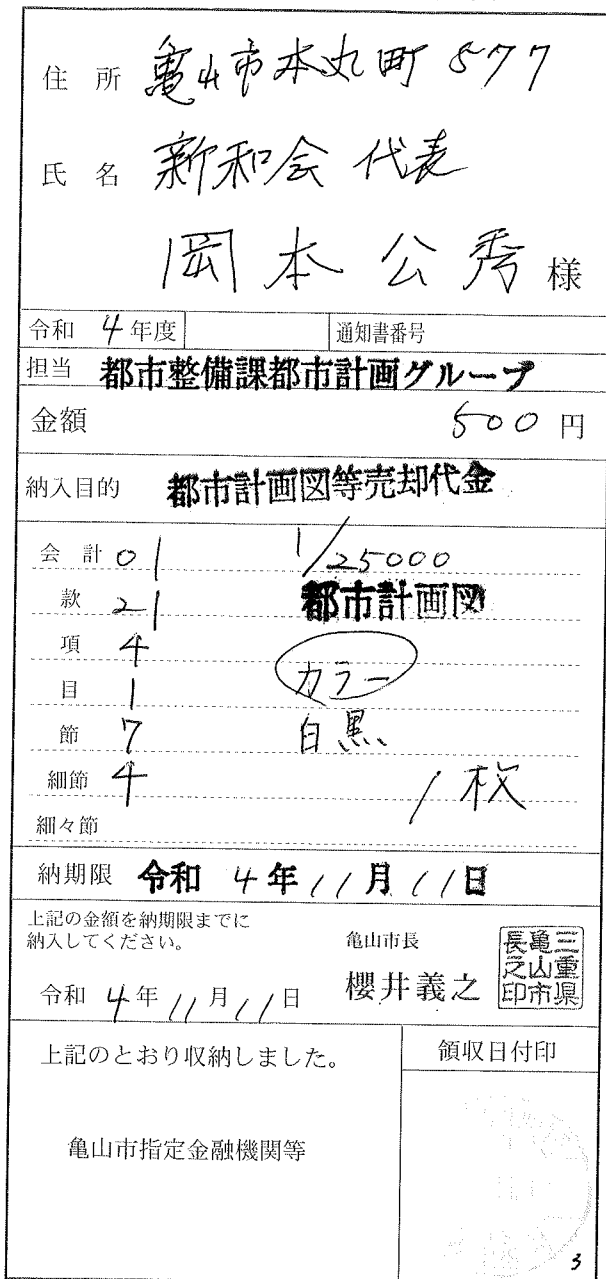 住所 亀山市本丸町 577
氏名 新和会 代表
岡本公秀 様
令和 4年度 通知書番号
担当 都市整備課都市計画グループ
金額 500 円
納入目的 都市計画図等売却代金
会計 01 1/25000
款 21 都市計画図
項 4
目 1 カラー
節 7 白黒
細節 4 1枚
細々節
納期限 令和 4年11月11日
上記の金額を納期限までに
納入してください。
亀山市長
令和 4年11月11日 櫻井義之
三重県亀山市長之印
上記のとおり収納しました。 領収日付印
亀山市指定金融機関等
3